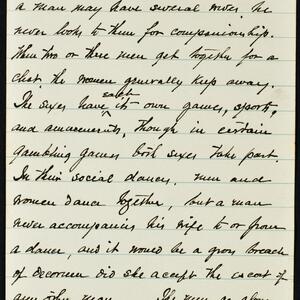 a man may have several wives, he
never looks to them for companionship.
When two or three men get together for a
chat, the women generally keep away.
The sexes have each its own games, sports,
and amusements, though in certain
gambling games both sexes take part.
In their social dances, men and
women dance together, but a man
never accompanies his wife to or from
a dance, and it would be a gross breach
of decorum did she accept the escort of
any other man. The men as